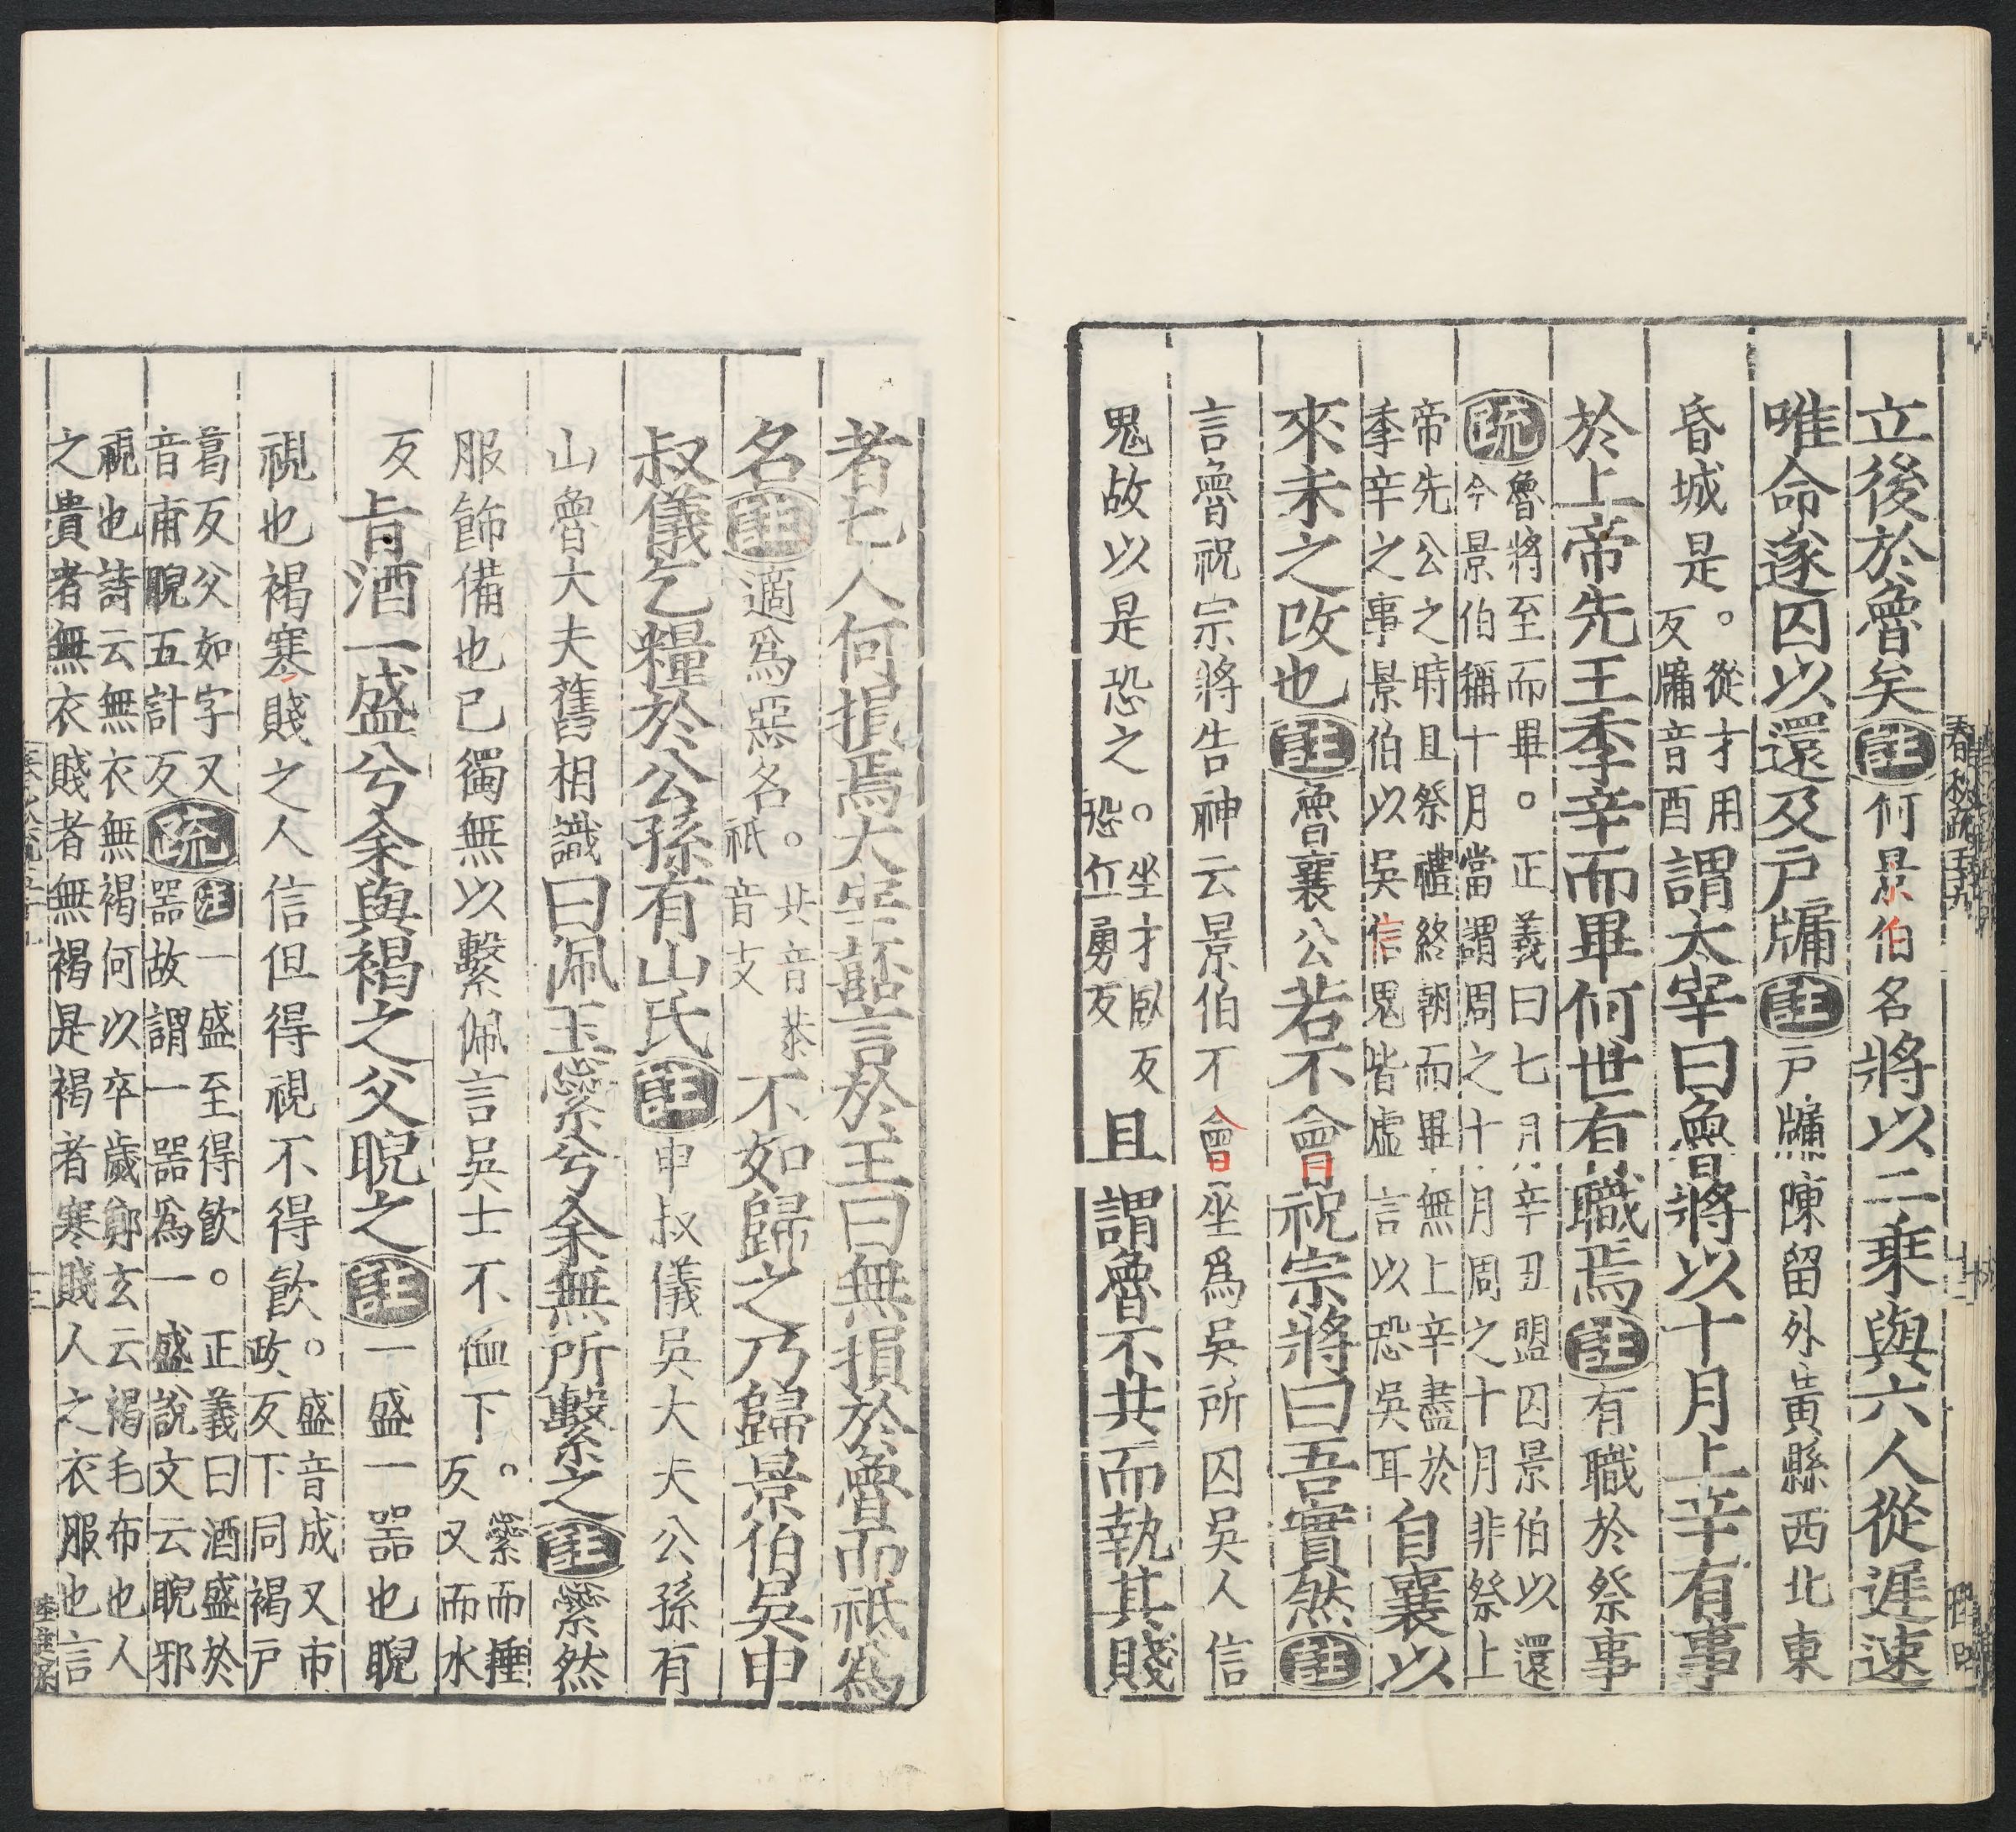 立後於魯矣註何景伯名將以二乗與六人從遲速
唯命遂囚以還及戶牖註戸牖陳留外黃縣西北東
昏城是。從才用反牖音酉謂太宰曰魯將以十月上辛有事
於上帝先王季辛而畢何世有職焉註有職於祭事
疏魯將至而畢。正義曰七月辛丑盟囚景伯以還
今景伯稱十月當謂周之十月周之十月非祭上
帝先公之時且祭禮終朝而畢無上辛盡於
季辛之事景伯以吳信鬼皆虛言以恐吳耳自襄以
來未之改也註魯襄公若不會祝宗將曰吾實然註
言魯祝宗將告神云景伯不會坐爲吳所囚吳人信
鬼故以是恐之。坐才臥反恐丘勇反且謂魯不共而執其賤
者七人何損焉大宰嚭言於王曰無損於魯而祇爲
名註適爲惡名。共音恭祇音支不如歸之乃歸景伯吳申
叔儀乞糧於公孫有山氏註申叔儀吳大夫公孫有
山魯大夫舊相識曰佩玉縈兮余無所繫之註縈然
服飾備也已獨無以繫佩言吳士不恤下。縈而捶反又而水
反旨酒一盛兮余與褐之父睨之註一盛一器也睨
視也褐寒賤之人信但得視不得飲。盛音成又市政反下同褐戸
葛反父如字又音甫睨五計反疏註一盛至得飲。正義曰酒盛於
器故謂一器爲一盛說文云睨邪
視也詩云無衣無褐何以卒歲鄭玄云褐毛布也人
之貴者無衣賤者無褐是褐者寒賤人之衣服也言
春秋疏五九